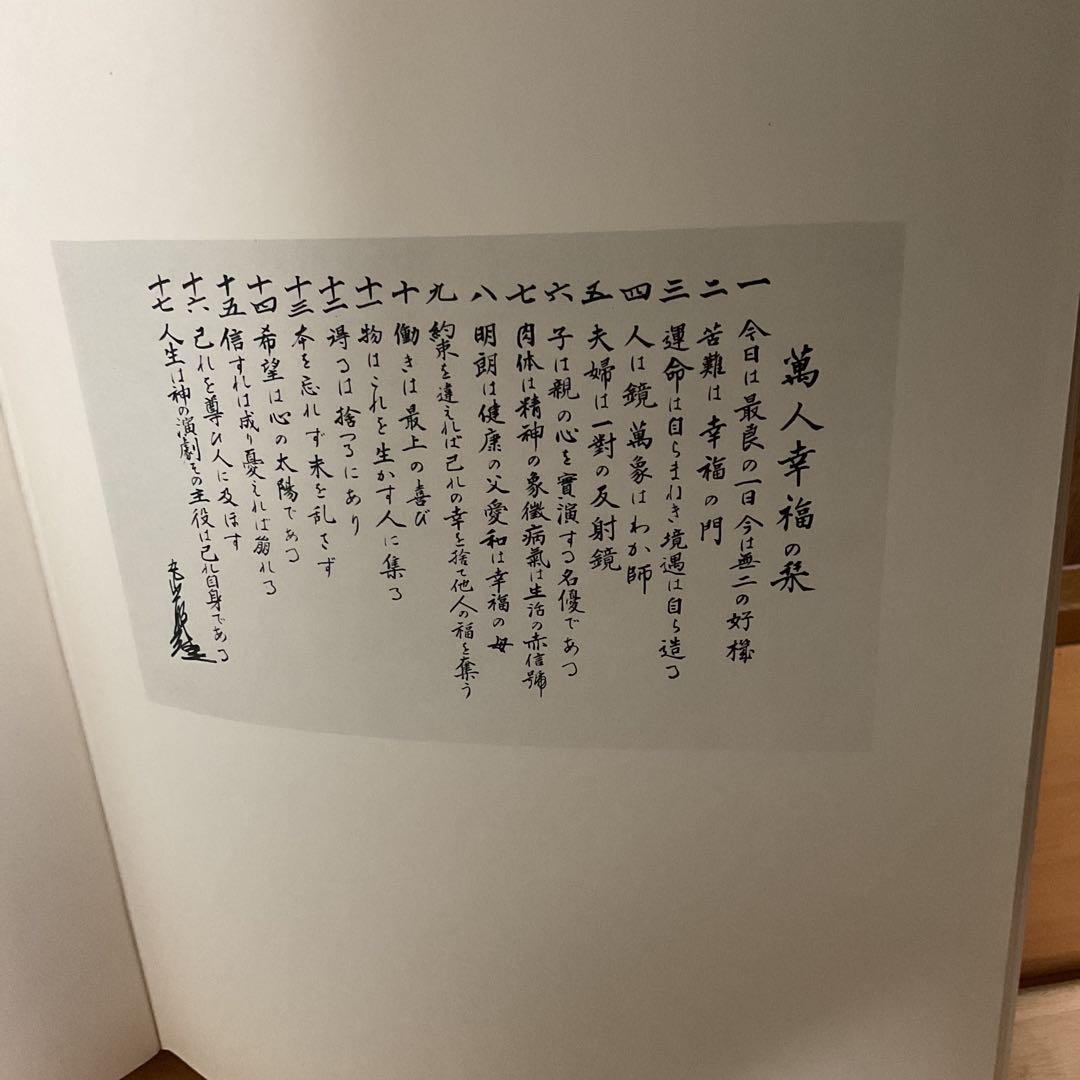 萬人幸福の栞
一 今日は最良の一日今は無二の好機
二 苦難は幸福の門
三 運命は自らまねき境遇は自ら造る
四 人は鏡萬象はわが師
五 夫婦は一對の反射鏡
六 子は親の心を實演する名優である
七 肉体は精神の象徴病氣は生活の赤信號
八 明朗は健康の父愛和は幸福の母
九 約束を違えれば己れの幸を捨て他人の福を奪う
十 働きは最上の喜び
十一 物はこれを生かす人に集る
十二 得るは捨つるにあり
十三 本を忘れず末を乱さず
十四 希望は心の太陽である
十五 信ずれば成り憂えれば崩れる
十六 己れを尊び人に及ぼす
十七 人生は神の演劇その主役は己れ自身である